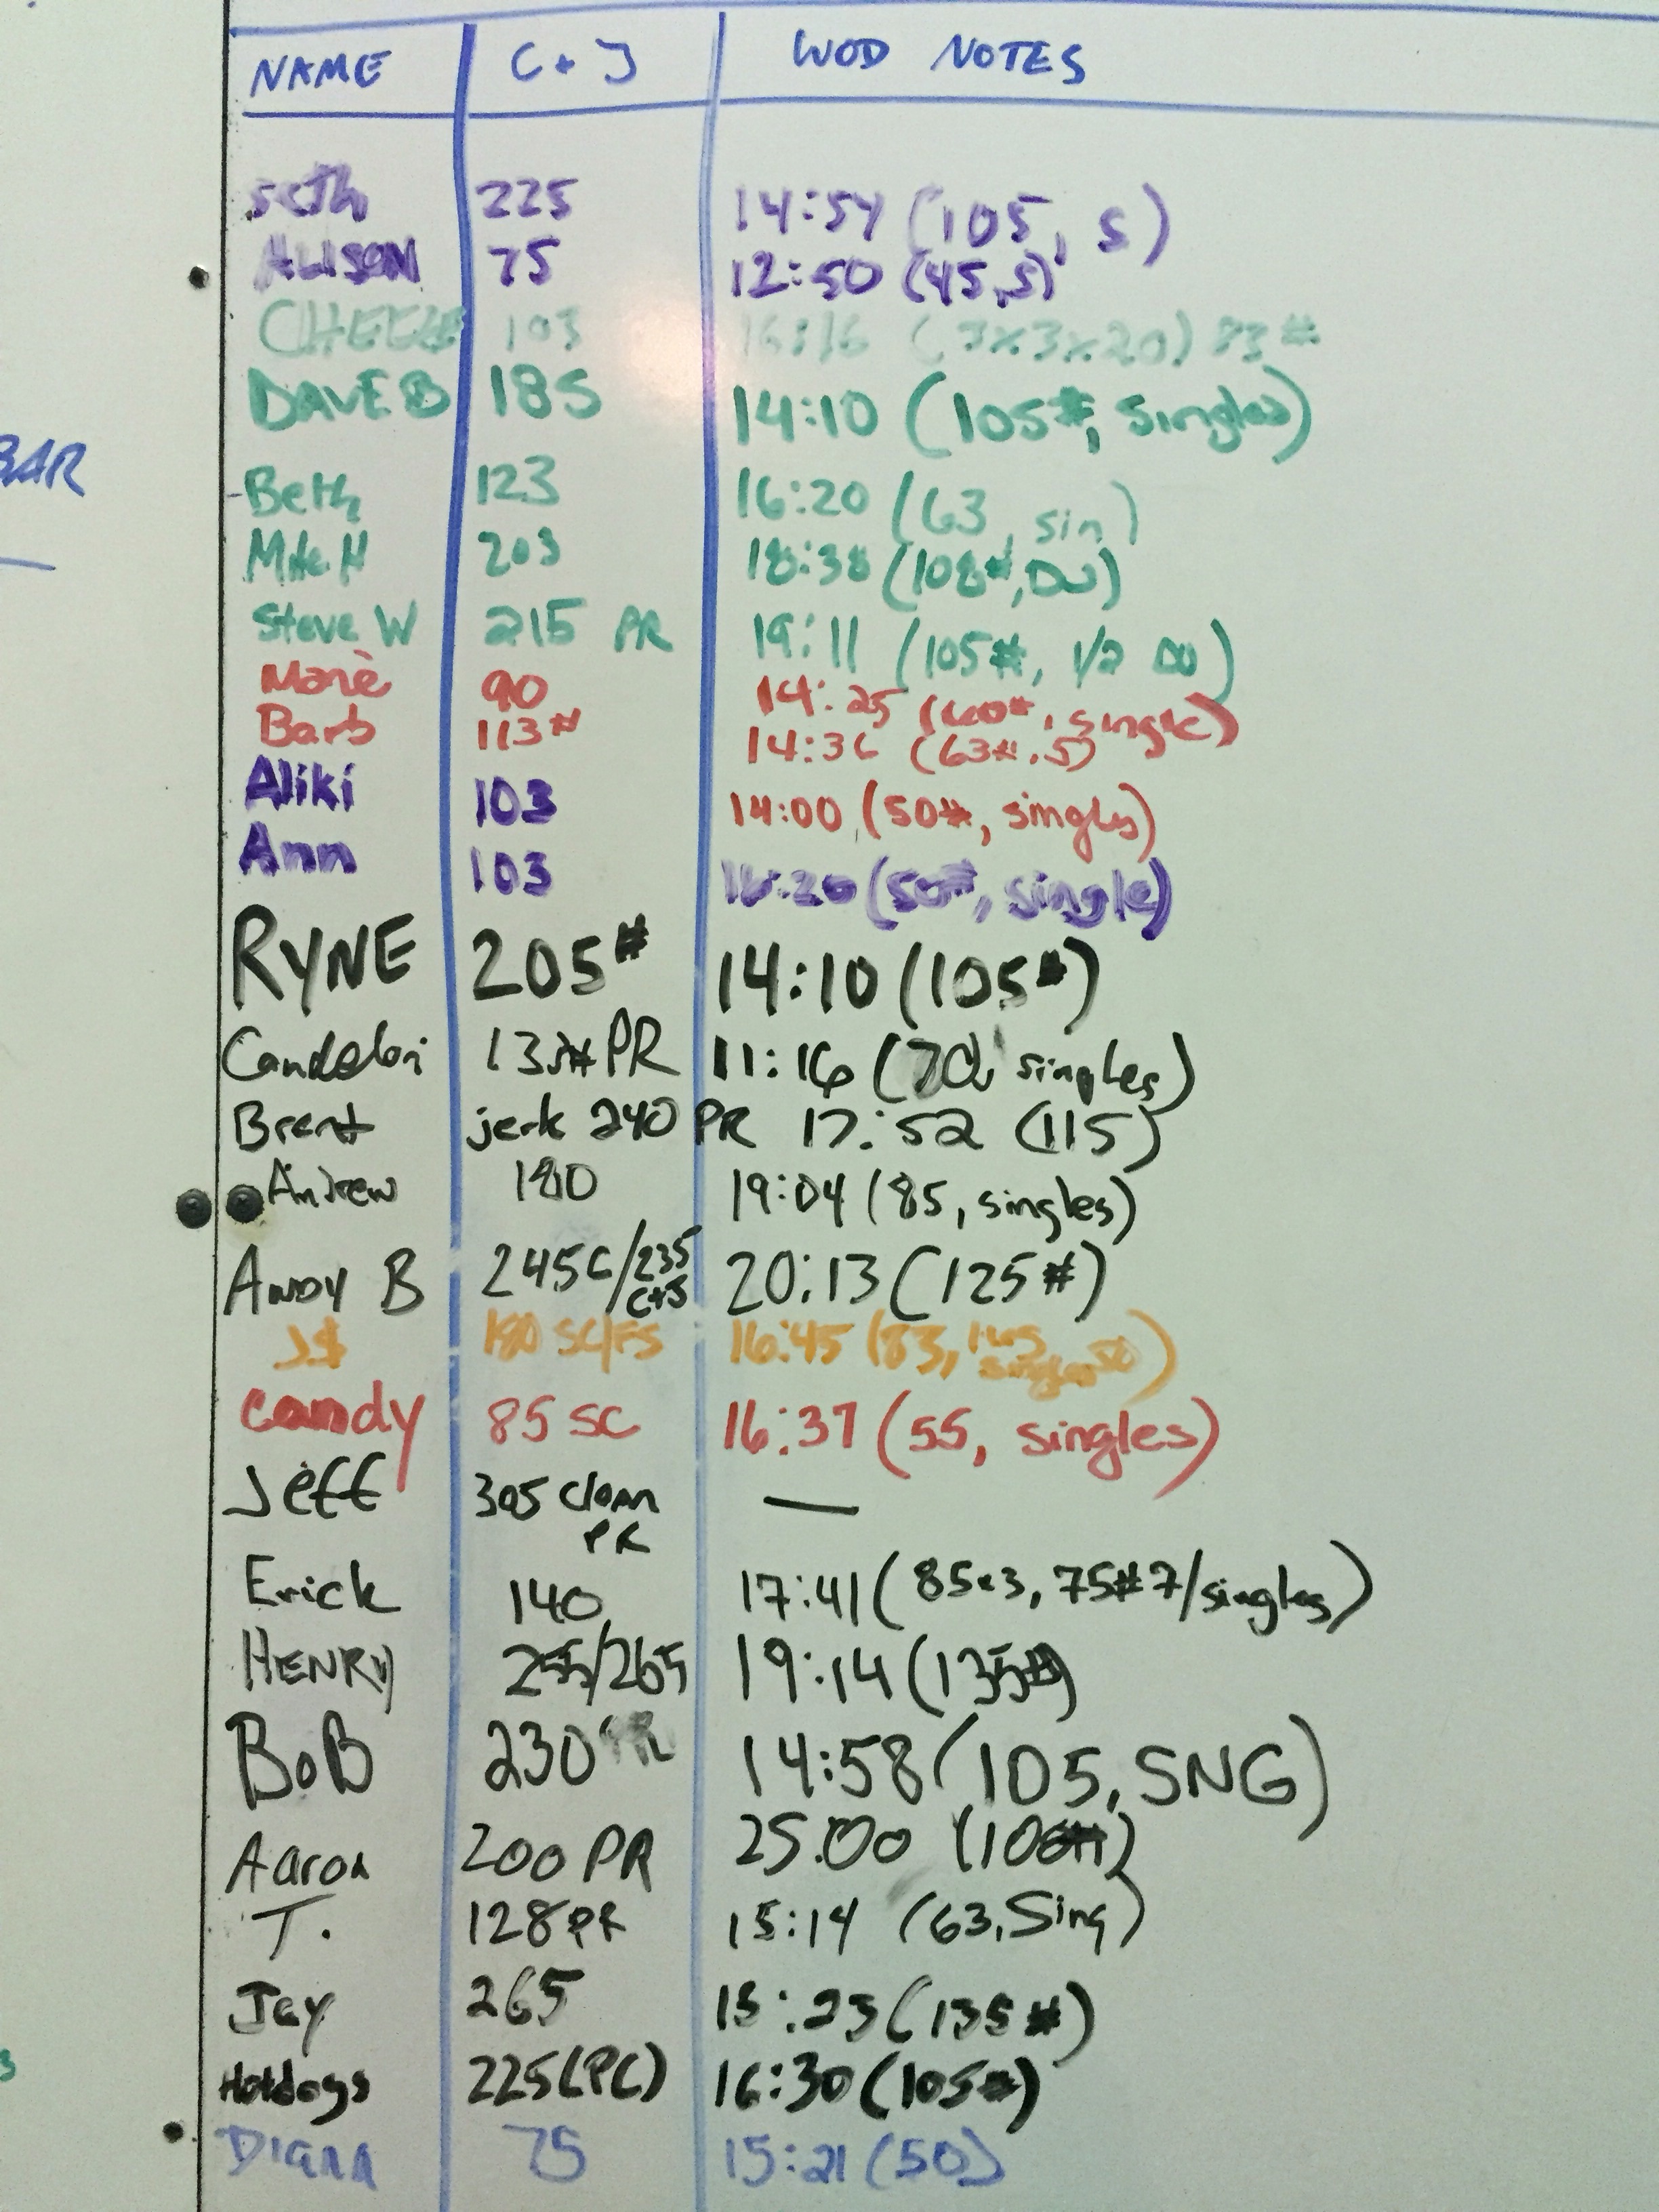 NAME C+J WOD NOTES
Seth 225 14:54 (105, S)
ALISON 75 12:50 (45,S)
103 16:16 (3x3x20) 83#
BAR
DAVE B 185 14:10 (105#, Singles)
Beth 123 16:20 (63, sin)
Mike H 203 18:38 (108#, DU)
Steve W 215 PR 19:11 (105#, 1/2 DU)
90 14:25 (60#, single)
Barb 113# (63#, S)
Aliki 103 14:00 (50#, singles)
Ann 103 (50#, single)
RYNE 205# 14:10 (105#)
PR 11:16 (70, singles)
Brent jerk 240 PR 17:52 (115)
Andrew 180 19:04 (85, singles)
ANDY B 245C/235 C+J 20:13 (125#)
J$ 180 SC/FS 16:45 (83, singles
Candy 85 SC 16:37 (55, singles)
Jeff 305 Clean PR —
Erick 140 17:41 (85x3, 75#7/singles)
HENRY 255/265 19:14 (135#)
BOB 230 PR 14:58 (105, SNG)
Aaron 200 PR 25:00
T. 128 PR 15:14 (63, Sing)
Jay 265 15:23 (135#)
Hotdogs 225(PC) 16:30 (105#)
Diana 75 15:21 (50)